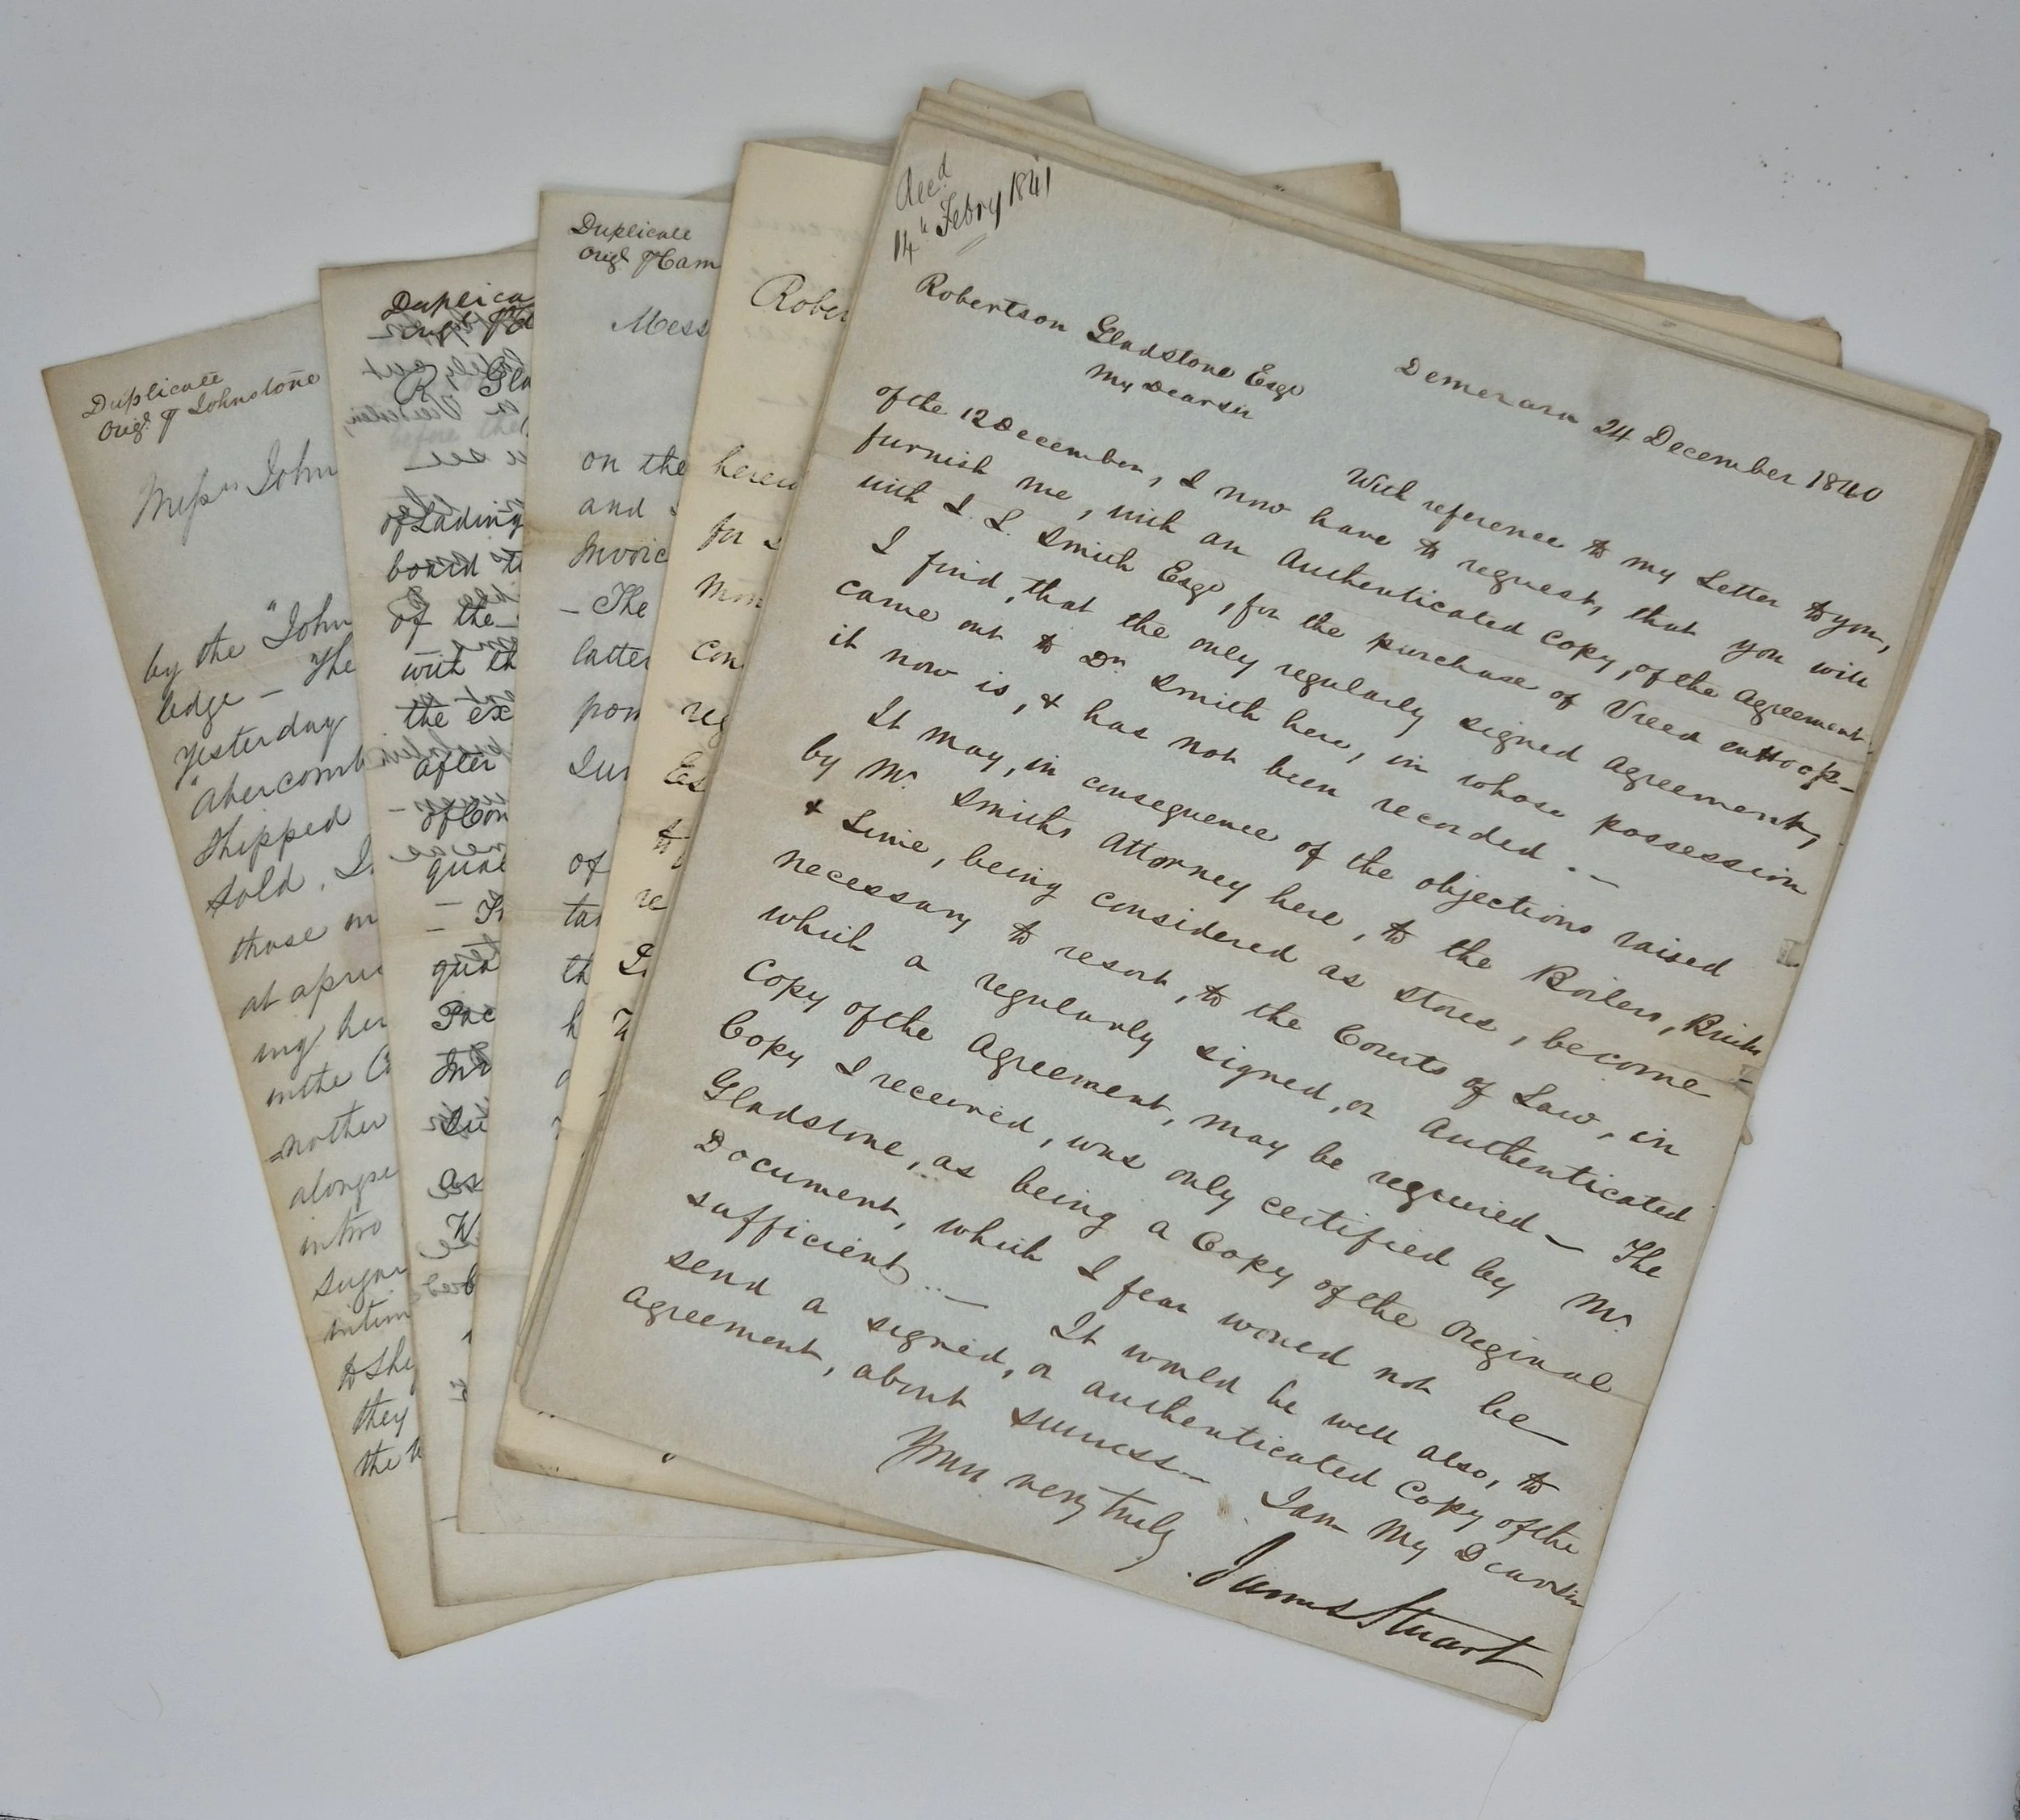 Duplicate
Orig.l p Johnstone
Mess.rs John
by the "John
ledge – The
Yesterday
"Abercomb
Shipped
Sold,
those
at a
ing her
in the
=nother
alongsi
in two
Sugar
intim
to Shi
they
the
Duplica
R Gla
of Lading
board
of the
with th
the ex
after
of Con
qua
qua
Pac
Duplicate
Orig.l p Ham
Mess
on the
and
Invoic
– The
latter
pon
of
Rober
herew
for
con
reg
Es
Rec.d
14.h Febry 1841
Demerara 24 December 1840
Robertson Gladstone Esq.
My Dear Sir
With reference to my Letter to you,
of the 12 December, I now have to request, that you will
furnish me, with an Authenticated Copy, of the Agreement
with I. L. Smith Esq., for the purchase of Vreed en Hoop –
I find, that the only regularly signed Agreement,
came out to Dr. Smith here, in whose possession
it now is, & has not been recorded. –
It may, in consequence of the objections raised
by Mr. Smiths Attorney here, to the Boilers, Bricks
& Lime, being considered as Stores, become –
necessary to resort, to the Courts of Law, in
which a regularly signed, or Authenticated
Copy of the Agreement, may be required – The
Copy I received, was only certified by Mr.
Gladstone, as being a Copy of the Original
Document, which I fear would not be
sufficient. – It would be well also, to
send a signed, or authenticated Copy of the
agreement, about Success – I am My Dear Sir
Your very truly
James Stuart